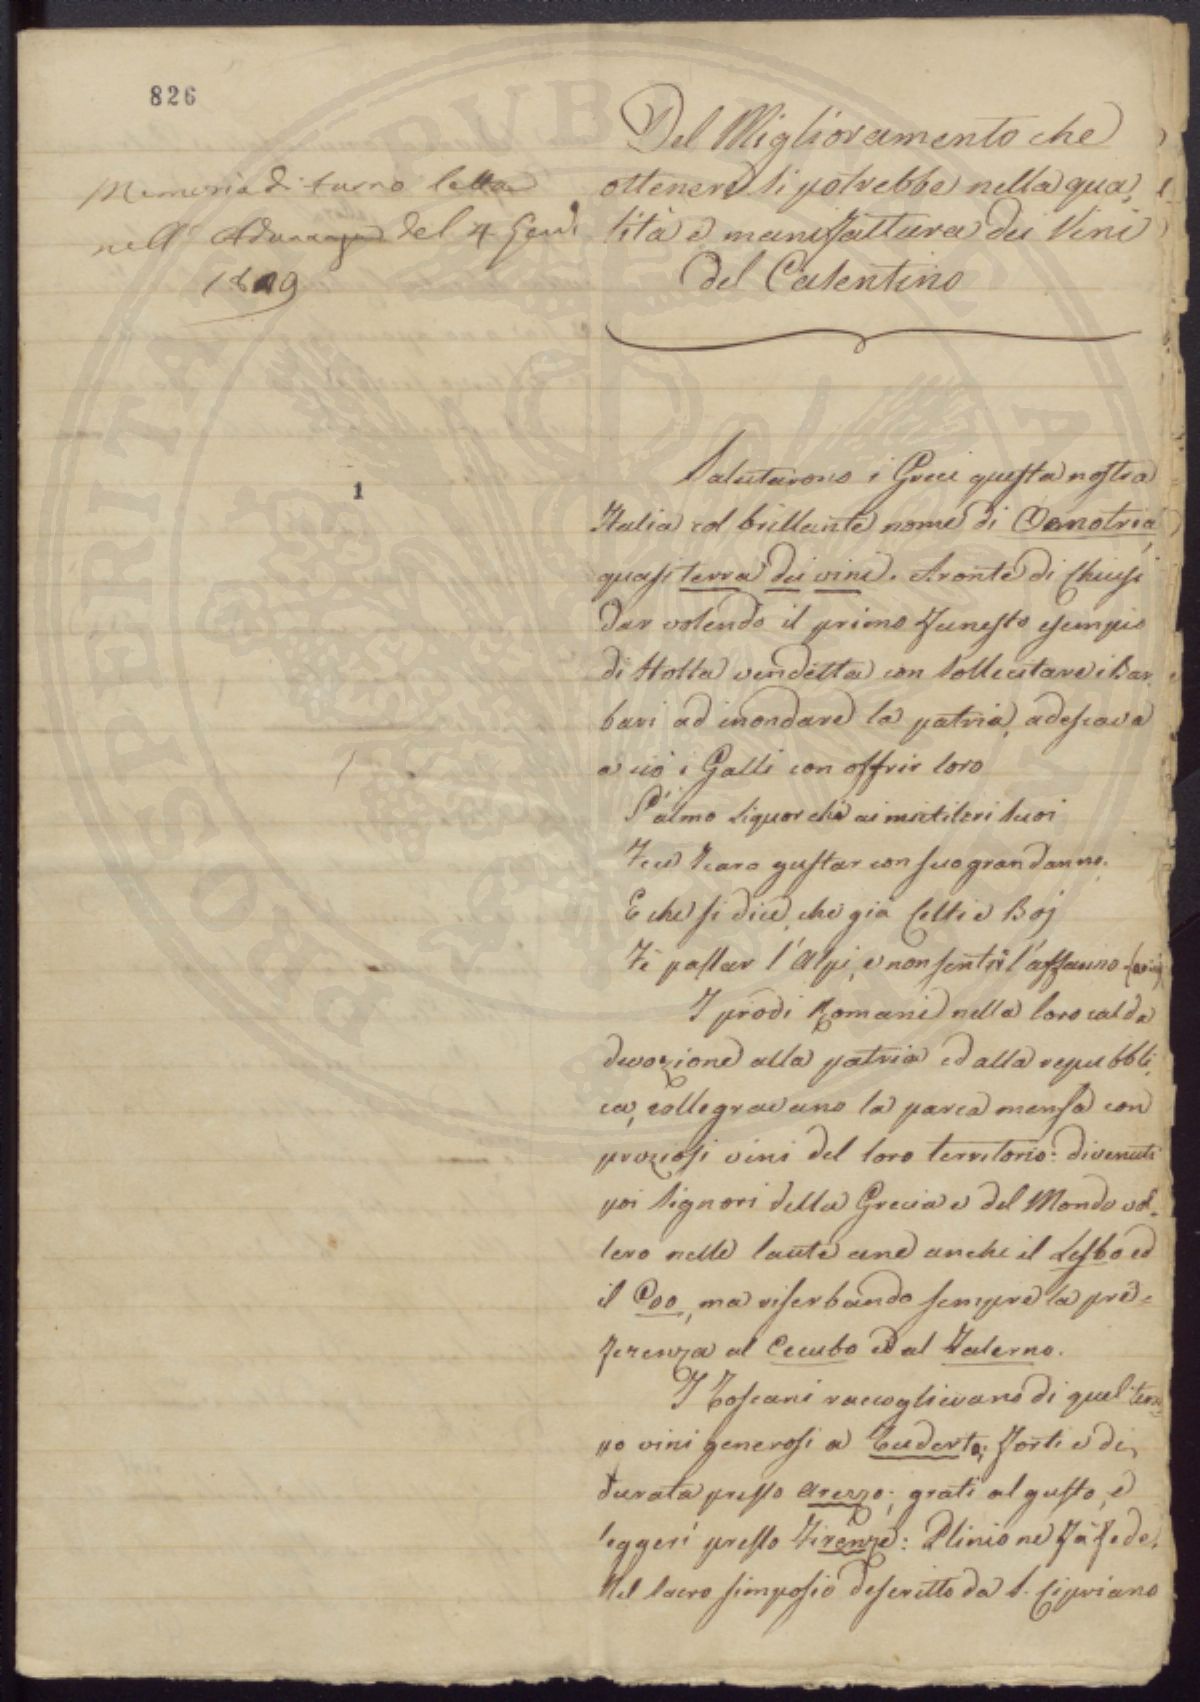 826
Memoria di turno letta
nell' Adunanza del 4 Genn.
1819
Del Miglioramento che
ottenere si potrebbe nella qua,
lità e manifattura dei Vini
del Casentino
1
Salutarono i Greci questa nostra
Italia col brillante nome di Oenotria,
quasi terra dei vini. Aronte di Chiusi
dar volendo il primo funesto esempio
di stolta vendetta con sollecitare i Bar,
bari ad inondare la patria, adescava
a ciò i Galli con offrir loro
L'almo liquor che ai mietitori suoi
Feo Icaro gustar con suo gran danno.
E che si dice, che già Celti e Boj
Fè passar l'Alpi, e non sentir l'affanno
I prodi Romani nella loro calda
devozione alla patria ed alla repubbli,
ca, rallegravano la parca mensa con
preziosi vini del loro territorio: divenuti
poi signori della Grecia e del Mondo vol,
lero nelle laute cene anche il Lesbo ed
il Coo, ma riserbando sempre la pre=
ferenza al Cecubo ed al Falerno.
I Toscani raccoglievano di quel tem,
po vini generosi a Tuderto; forti e di
durata presso Arezzo; grati al gusto, e
leggeri presso Firenze: Plinio ne fà fede.
Nel sacro simposio descritto da S. Cipriano